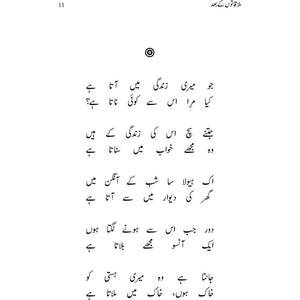 ملاقاتوں کے بعد 11
جو میری زندگی میں آتا ہے
کیا مرا اس سے کوئی ناتا ہے؟
جتنے سچ اس کی زندگی کے ہیں
وہ مجھے خواب میں سناتا ہے
اک ہیولا سا شب کے آنگن میں
گھر کی دیوار میں سے آتا ہے
دور جب اس سے ہونے لگتا ہوں
ایک آنسو مجھے بلاتا ہے
جانتا ہے وہ میری ہستی کو
خاک ہوں، خاک میں ملاتا ہے